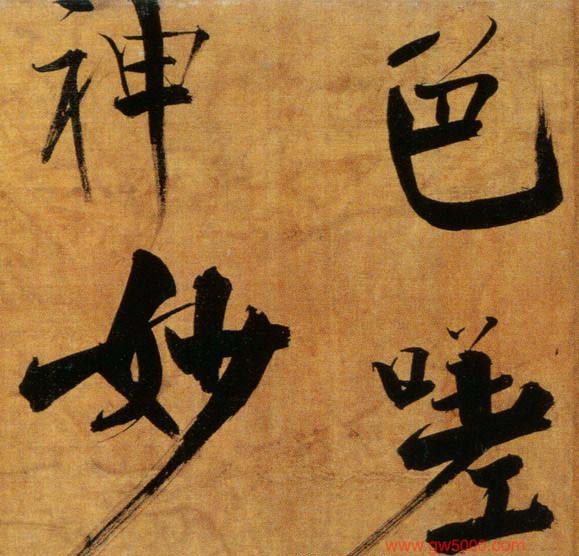 色嗟
神妙
www.gw5000.com